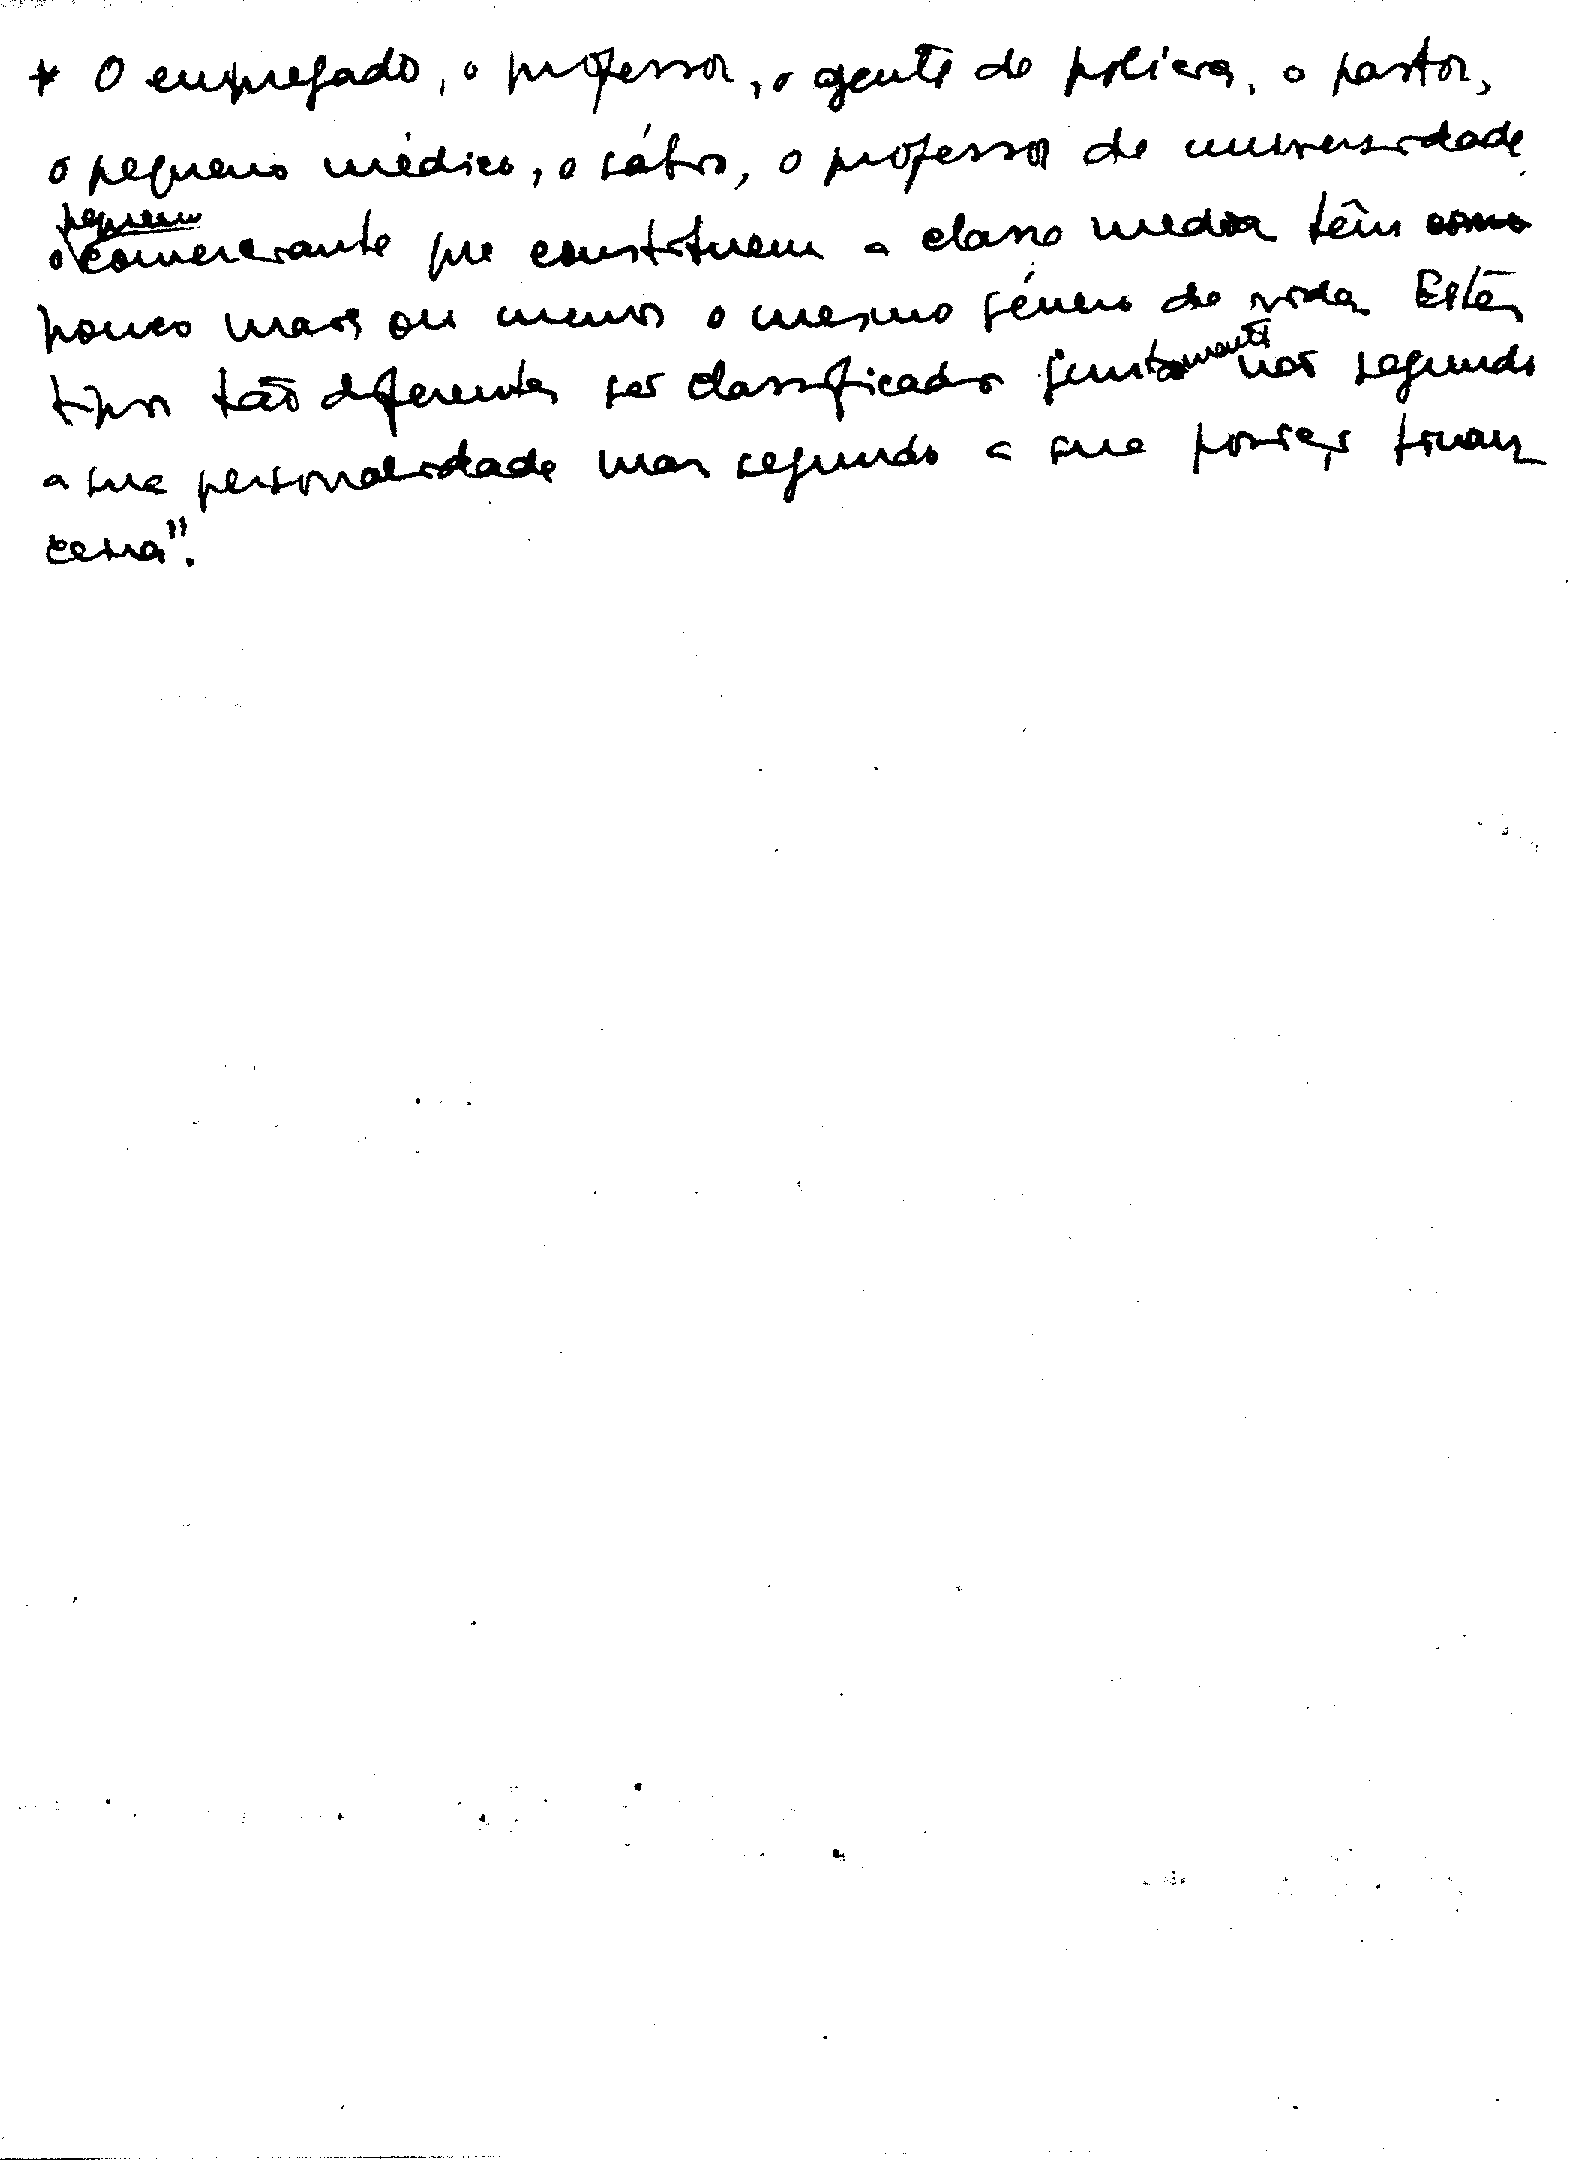 * O empregado, o professor, o agente de polícia, o pastor,
o pequeno médico, o sábio, o professor de universidade
o pequeno comerciante que constituem a classe media têm como
pouco mais ou menos o mesmo género de vida. Estes
tipos tão diferentes ser classificados juntamente não segundo
a sua personalidade mas segundo a sua posição finan
ceira".